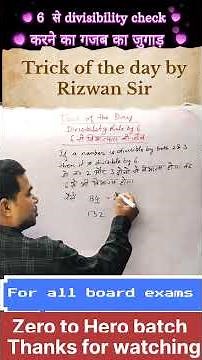 6 से divisibility check
करने का गजब का जुगाड़
Trick of the day by
Rizwan Sir
Trick of the Day
Divisibility Rule by 6
6 से
If a number is divisible by both 2 & 3
then it is divisible by 6
2 और 3 दोनों से
6 से भी
जैसे 84
132
For all board exams
Zero to Hero batch
Thanks for watching